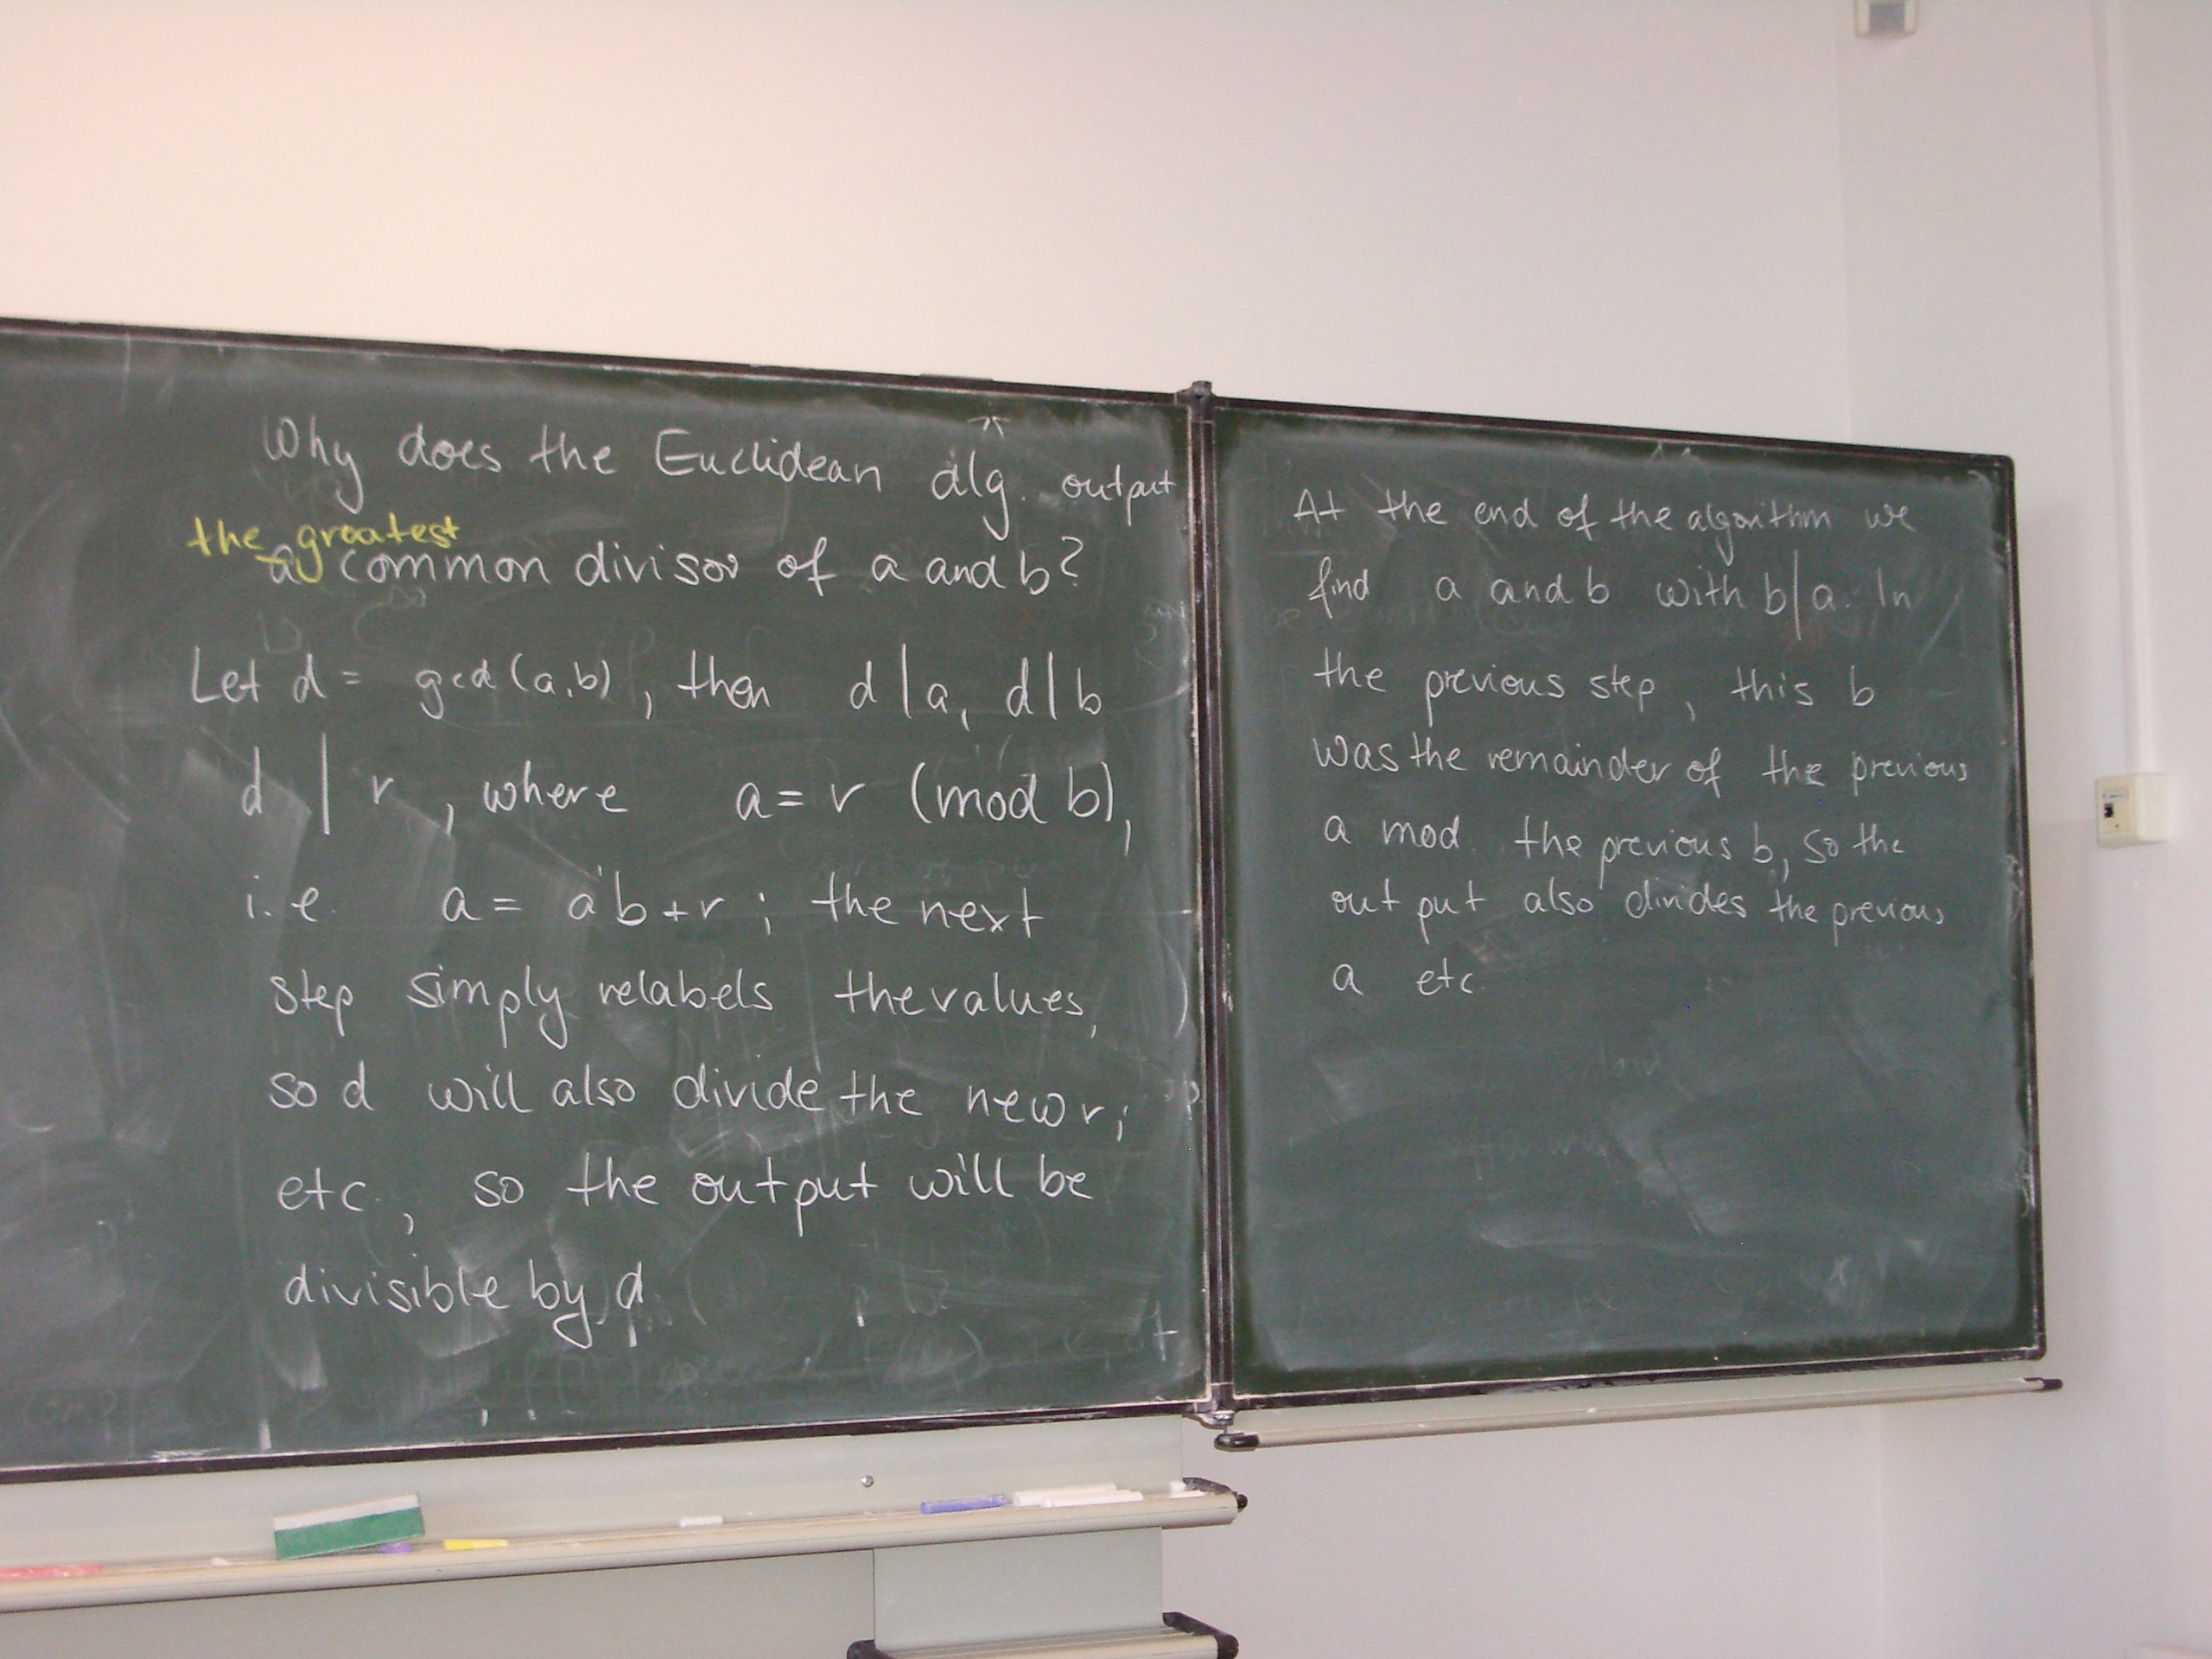 Why does the Euclidean alg. output
the greatest
a common divisor of a and b?
Let d = gcd(a,b), then d | a, d | b
d | r, where a = r (mod b),
i.e. a = a'b + r; the next
step simply relabels the values,
so d will also divide the new r;
etc., so the output will be
divisible by d
At the end of the algorithm we
find a and b with b|a. In
the previous step, this b
was the remainder of the previous
a mod. the previous b, so the
output also divides the previous
a etc.